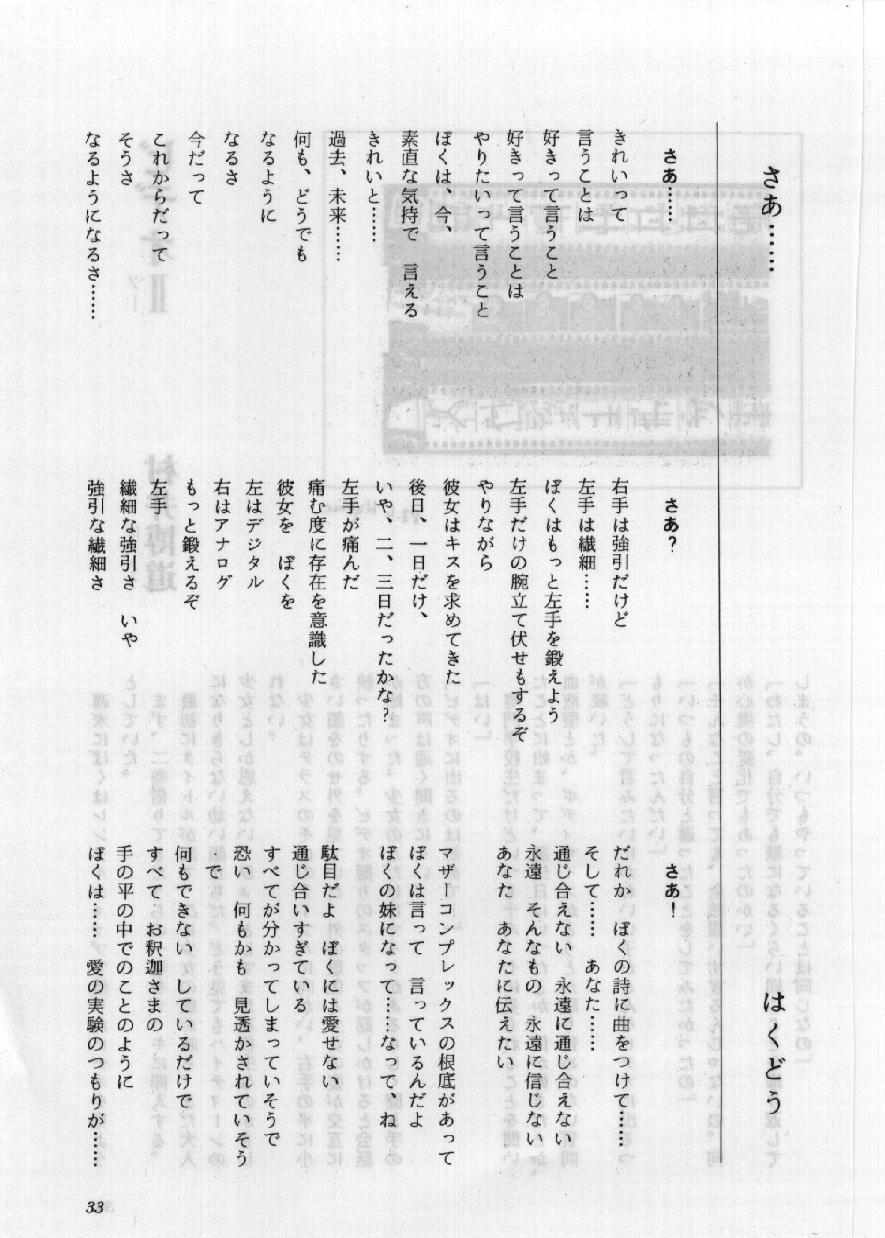 さあ……
はくどう
さあ……
きれいって
言うことは
好きって言うこと
好きって言うことは
やりたいって言うこと
ぼくは、今、
素直な気持で　言える
きれいと……
過去、未来……
何も、どうでも
なるように
なるさ
今だって
これからだって
そうさ
なるようになるさ……
さあ？
右手は強引だけど
左手は繊細……
ぼくはもっと左手を鍛えよう
左手だけの腕立て伏せもするぞ
やりながら
彼女はキスを求めてきた
後日、一日だけ、
いや、二、三日だったかな？
左手が痛んだ
痛む度に存在を意識した
彼女を　ぼくを
左はデジタル
右はアナログ
もっと鍛えるぞ
左手
繊細な強引さ　いや
強引な繊細さ
さあ！
だれか　ぼくの詩に曲をつけて……
そして……　あなた……
通じ合えない　永遠に通じ合えない
永遠　そんなもの　永遠に信じない
あなた　あなたに伝えたい
マザーコンプレックスの根底があって
ぼくは言って　言っているんだよ
ぼくの妹になって……なって、ね
駄目だよ　ぼくには愛せない
通じ合いすぎている
すべてが分かってしまっていそうで
恐い　何もかも　見透かされていそう
で
何もできない　しているだけで
すべて　お釈迦さまの
手の平の中でのことのように
ぼくは……　愛の実験のつもりが……
33